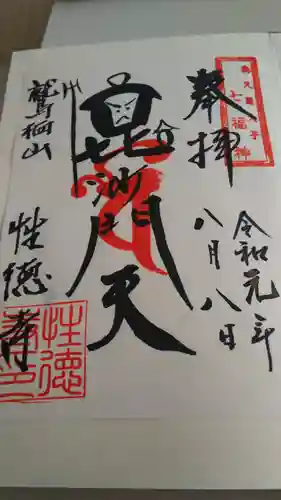 奉拝
七福神
令和元年
八月八日
毘沙門天
鷲栖山
性徳寺
性徳